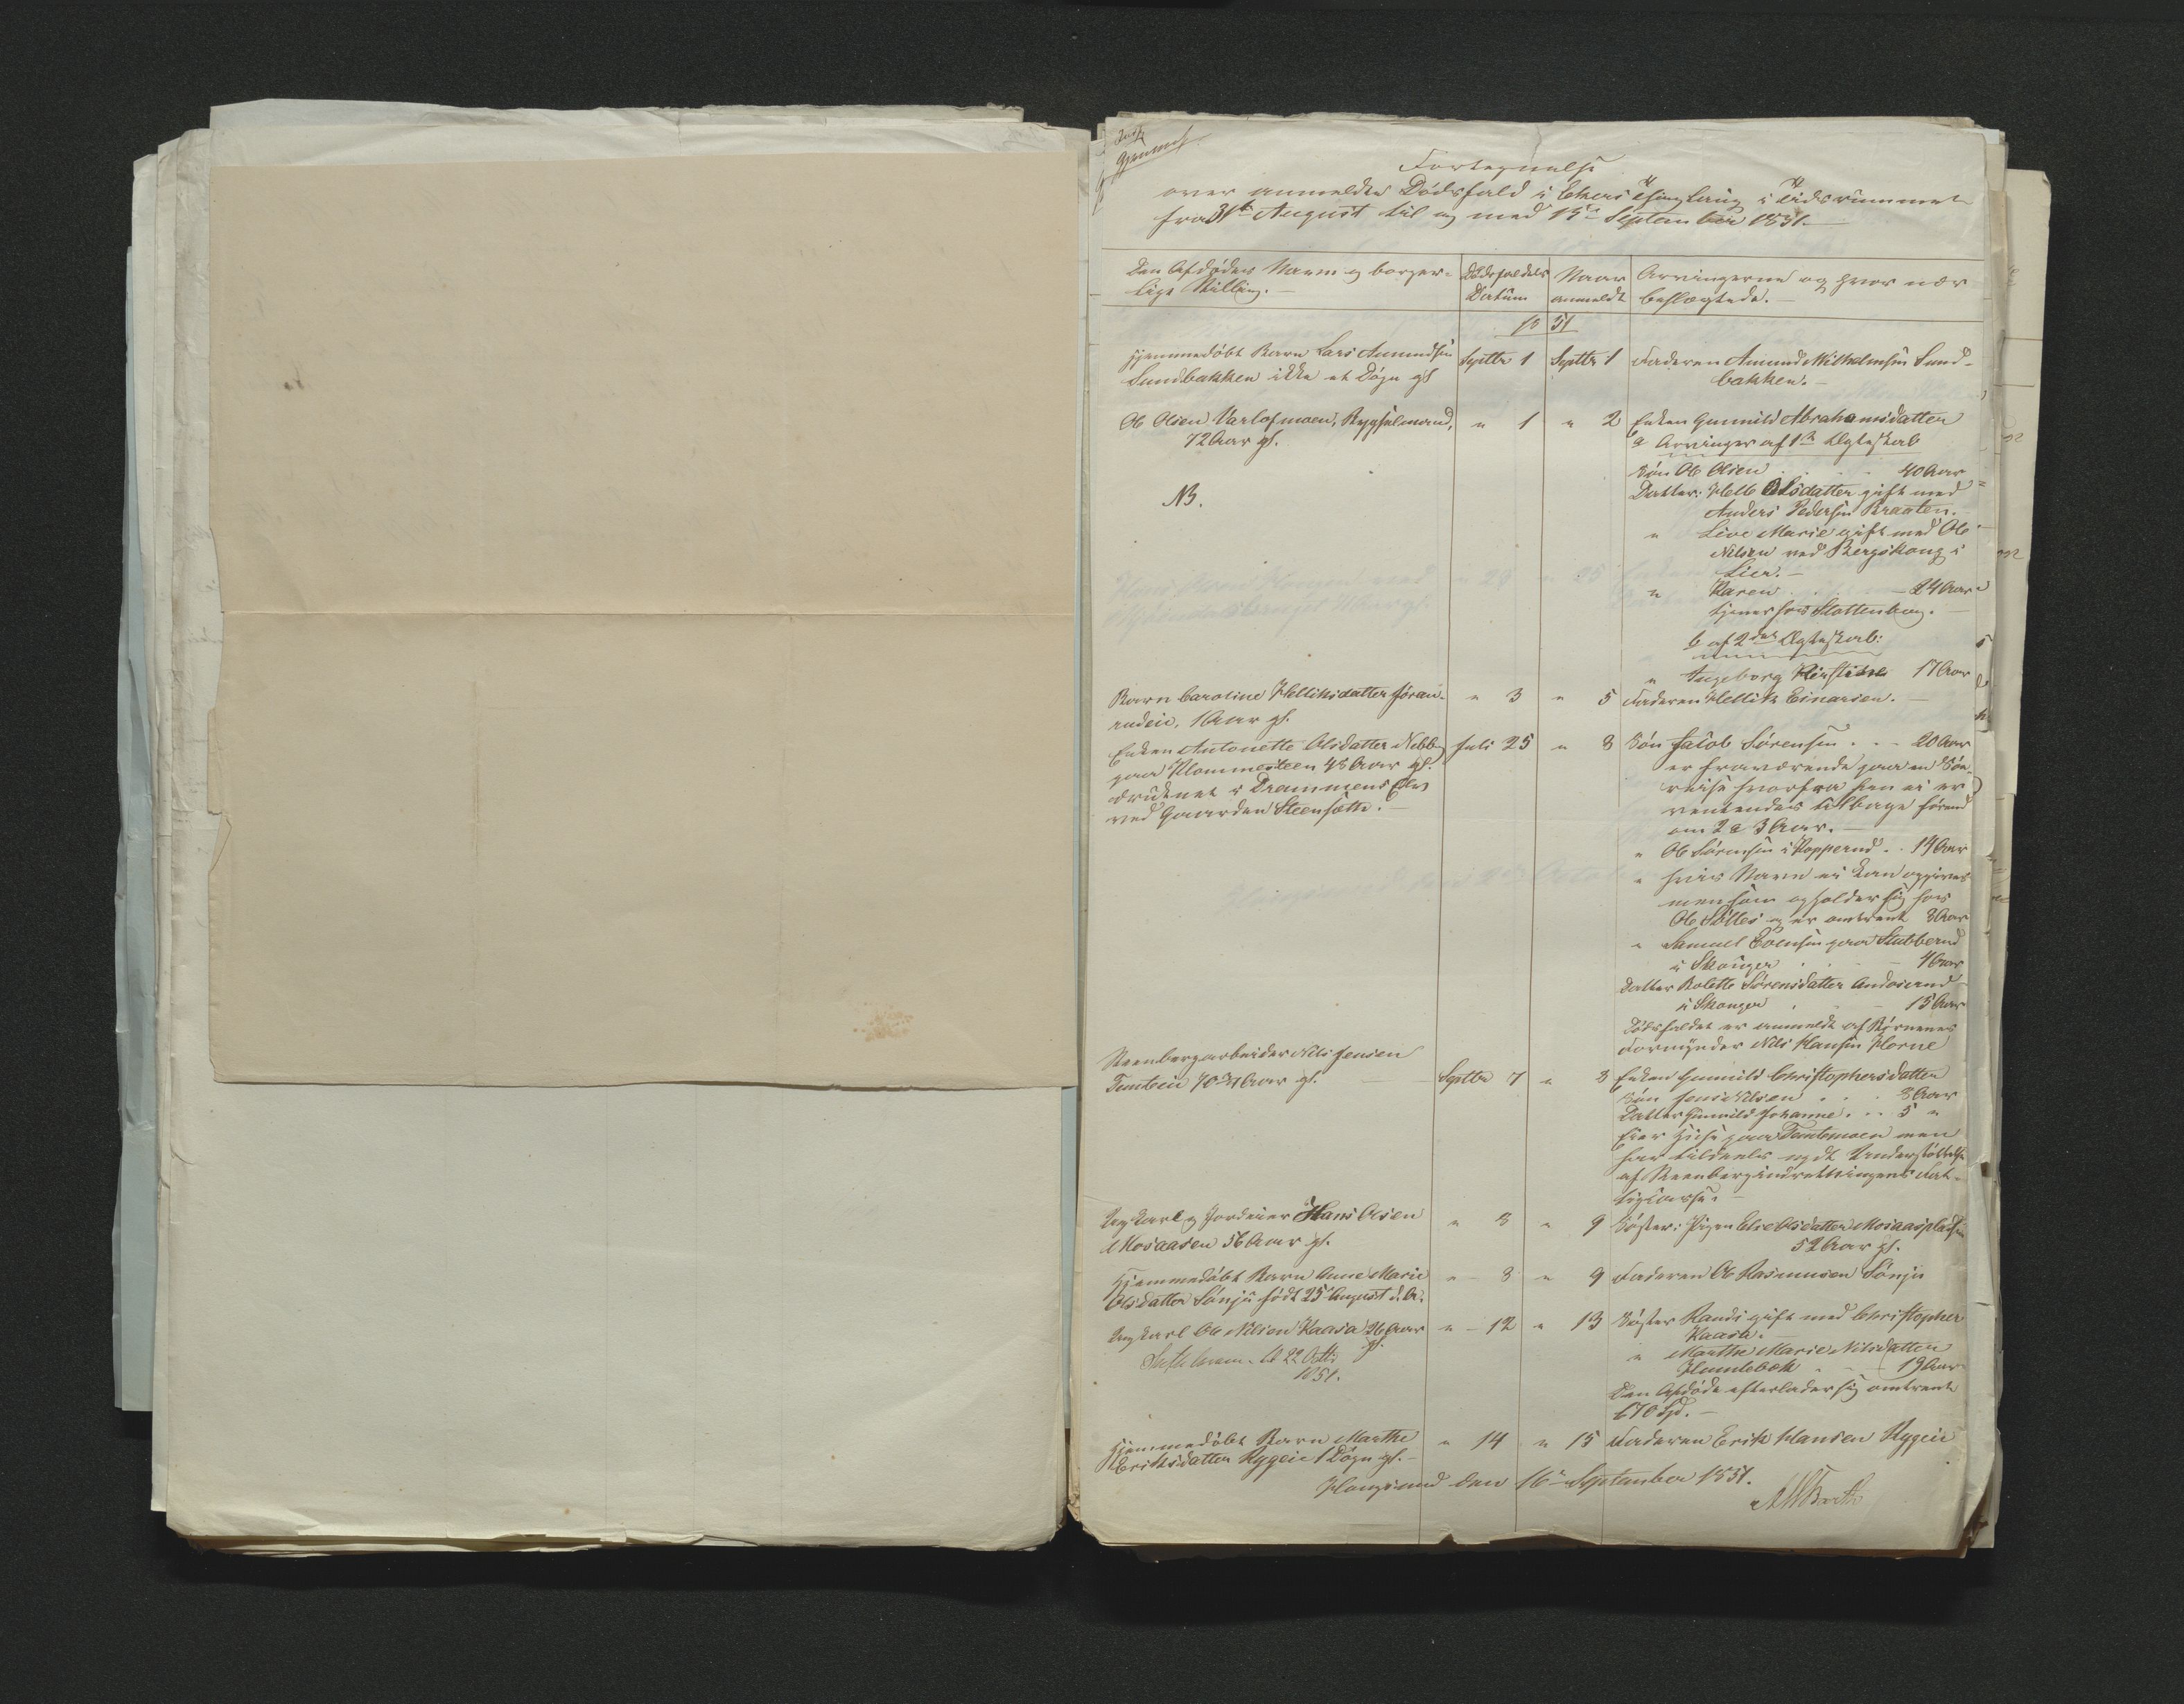 Fortegnelse
over anmeldte Dödsfald i Ekers Thinglaug i Tidsrummet
fra 31te August til og med 15de September 1851.
Den Afdödes Navn og borger-
lige Stilling.
Dödsfaldets
Datum
Naar
anmeldt
Arvingerne og hvor nær
beslægtede.
1851
Hjemmedöbt Barn Lars Amundsen
Sundbakken ikke et Dögn gl
Septbr 1
Septbr 1
Faderen Amund Wilhelmsen Sund-
bakken.
Ole Olsen Varlofmoen, Bygselmand,
72 Aar gl.
" 1
" 2
Enken Gunnild Abrahamsdatter
a Arvinger af 1ste Ægteskab
Sön Ole Olsen 40 Aar
NB.
Datter: Helle Olsdatter gift med
Anders Pedersen Braaten.
" Live Marie gift med Ole
Nilsen ved Bergskoug i
Lier.
" Karen 24 Aar
tjener hos Stoltenberg.
b af 2det Ægteskab:
" Ingeborg Kirstine 17 Aar
Barn Caroline Helliksdatter
1 Aar gl.
" 3
" 5
Faderen Hellik Einarsen.
Enken Antonette Olsdatter Nebb
paa Flommesteen 48 Aar gl.
druknet i Drammens Elv
ved Gaarden Steensæth.
Juli 25
" 8
Sön Jacob Sörensen 20 Aar
er fraværende paa en Söe-
reise hvorfra han ei er
ventendes tilbage förend
om 2 a 3 Aar.
" Ole Sörensen i Kopperud 14 Aar
" hvis Navn ei kan opgives
men som opholder sig hos
Ole Sölles og er omtrent 8 Aar
" Samuel paa Stubberud
i Skouger 4 Aar
Datter Rolette Sörensdatter
i Skouger 15 Aar
Dödsfaldet er anmeldt af Börnenes
Formynder Nils Hansen Horne
Steenbergarbeider Nils Jensen
Temteie 70 Aar gl.
Septbr 7
" 8
Enken Gunnild Christophersdatter
Sön Jens Nilsen 8 Aar
Datter Gunnild Johanne 5 "
Eier Huse paa Temtemoen men
har tildeels nydt Understöttelse
af Steenbergindretningens Fat-
tigcasse.
Ungkarl og Jordeier Hans Olsen
Mosaasen 56 Aar gl.
" 8
" 9
Söster: Pigen Else Olsdatter Mosaaspladsen
52 Aar gl.
Hjemmedöbt Barn Anne Marie
Olsdatter Sönju födt 25 August d. A.
" 8
" 9
Faderen Ole Rasmusen Sönju
Ungkarl Ole Nilsen Kaasa 26 Aar
gl.
22 Octbr
1851.
" 12
" 13
Söster Randi gift med Christopher
Kaasa.
" Marthe Marie Nilsdatter
Hamlebæk 19 Aar
Den Afdöde efterlader sig omtrent
670 Spd.
Hjemmedöbt Barn Marthe
Eriksdatter Rygeie 1 Dögn gl.
" 14
" 15
Faderen Erik Hansen Rygeie
Hougsund den 16de September 1851.